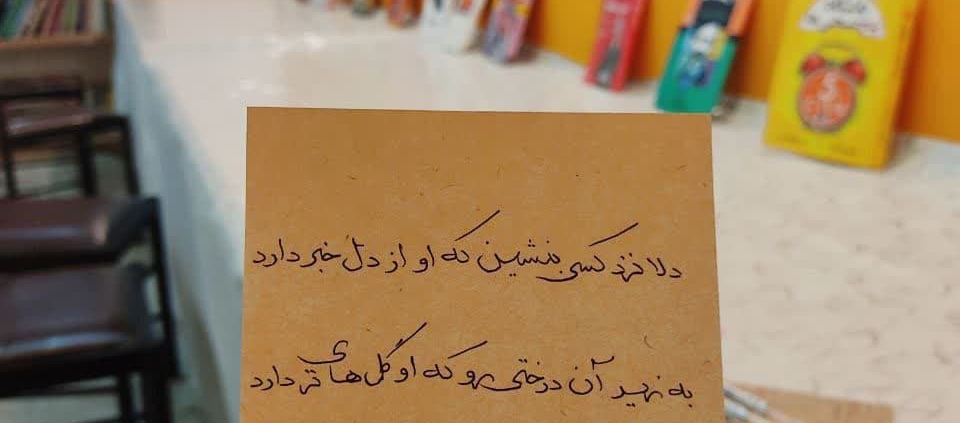 دلا نزد کسی بنشین که او از دل خبر دارد
به زیر آن درختی رو که او گل‌های تر دارد
5